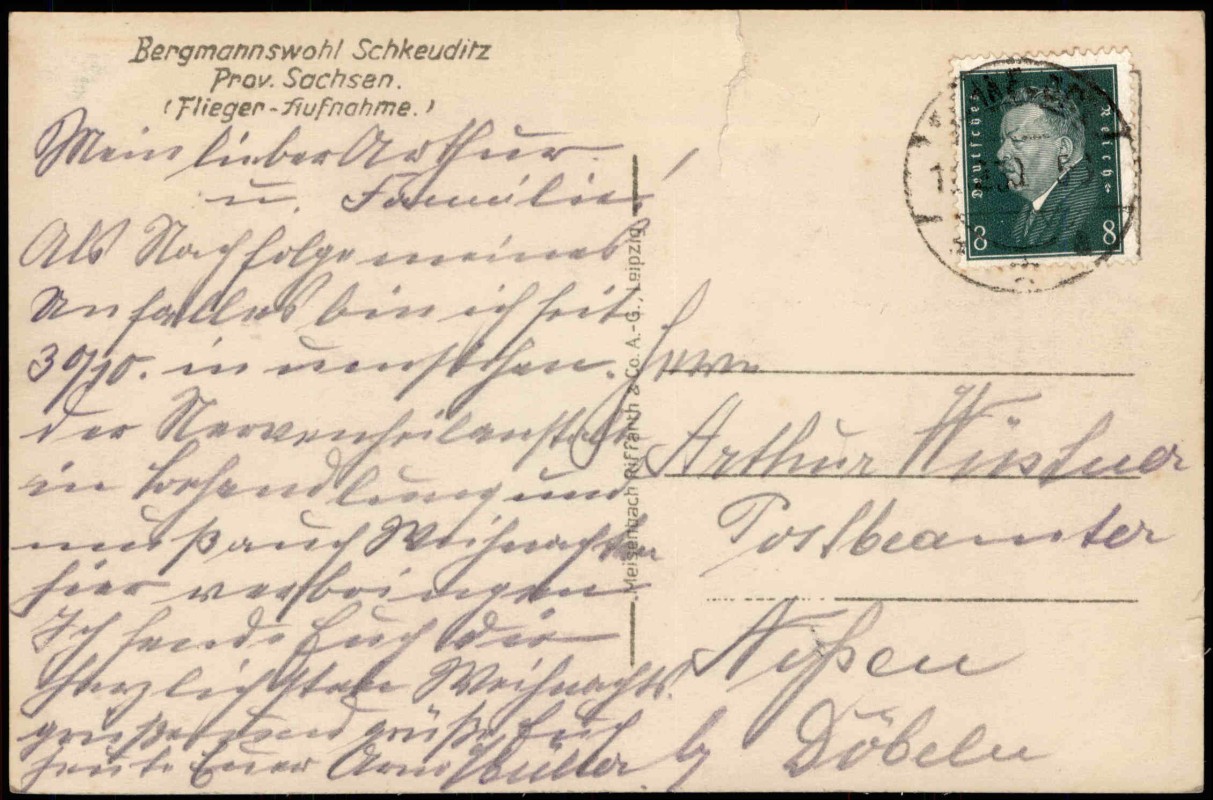 Bergmannswohl Schkeuditz
Prov. Sachsen.
(Flieger-Aufnahme.)
Mein lieber Arthur
u. Familie!
Als Nachfolge meines
Unfalles bin ich seit
30/10. in
der Nervenheilanstalt
in Behandlung und
muß auch Weihnachten
hier verbringen
Ich sende Euch die
herzlichsten Weihnachts
grüße und grüße Euch
heute Euer
Meisenbach Riffarth & Co. A.-G., Leipzig.
Deutsches Reich
8 8
Herrn
Arthur Wüstner
Postbeamter
Noßen
b/ Döbeln